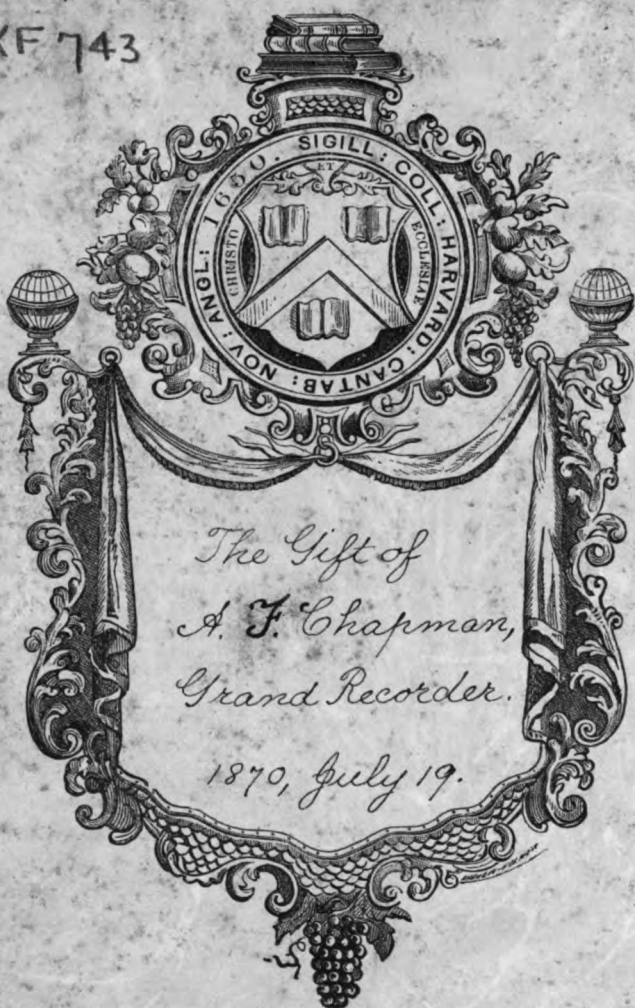 XF 743
SIGILL: COLL: HARVARD: CANTAB: NOV: ANGL: 1650.
ET
CHRISTO
ECCLESIAE
The Gift of
A. F. Chapman,
Grand Recorder.
1870, July 19.